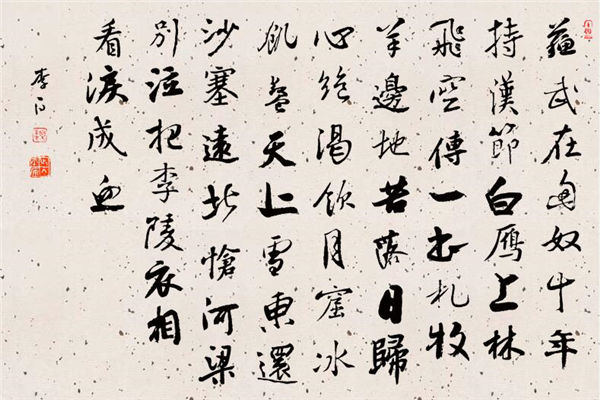 蘇武在匈奴十年
持漢節白雁上林
飛空傳一書札牧
羊邊地苦落日歸
心絕渴飲月窟冰
飢餐天上雪東還
沙塞遠北愴河梁
別泣把李陵衣相
看淚成血
李